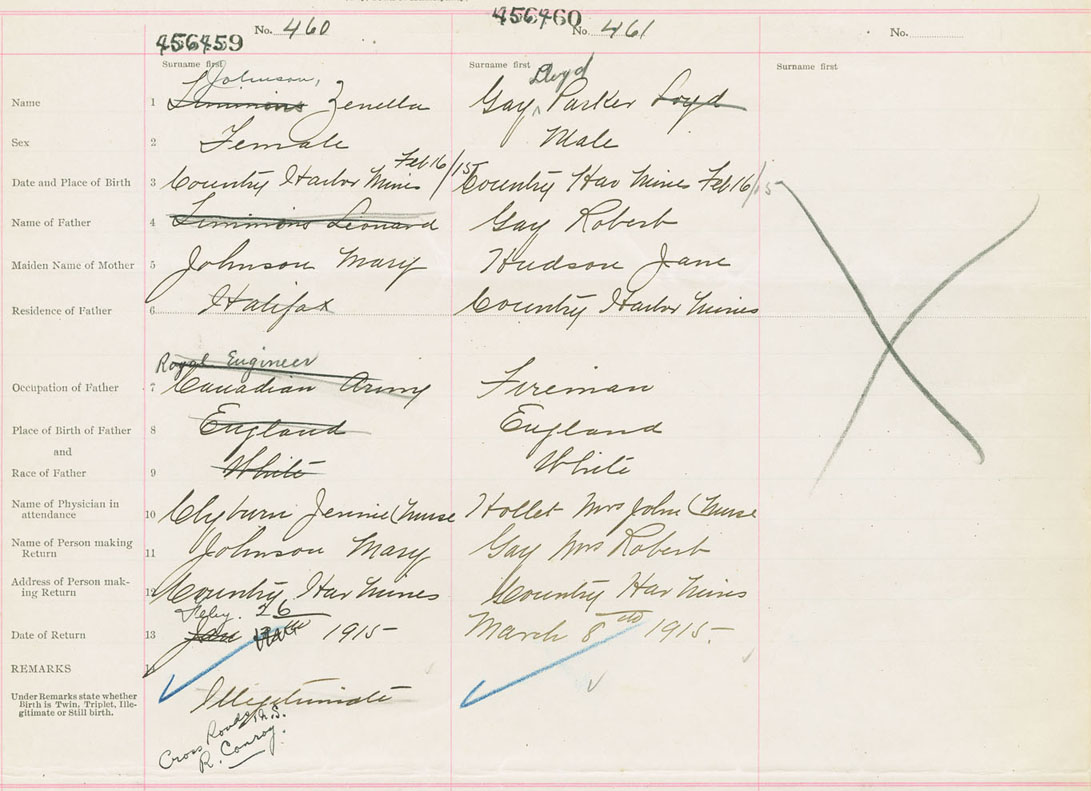 456459 No. 460 456460 No. 461 No.
Surname first Surname first Surname first
Johnson, Lloyd
Name 1 Simmons Zenella Gay ^ Parker Loyd
Sex 2 Female Male
Feb 16/15
Date and Place of Birth 3 Country Harbor Mines Country Har Mines Feb 16/15
Name of Father 4 Simmons Leonard Gay Robert
Maiden Name of Mother 5 Johnson Mary Hudson Jane
Residence of Father 6 Halifax Country Harbor Mines
Royal Engineer
Occupation of Father 7 Canadian Army Fireman
Place of Birth of Father 8 England England
and
Race of Father 9 White White
Name of Physician in
attendance 10 Clyburn Jennie (Nurse Hollet Mrs John (Nurse
Name of Person making
Return 11 Johnson Mary Gay Mrs Robert
Address of Person mak-
ing Return 12 Country Har Mines Country Har Mines
Feby. 26
Date of Return 13 Jan 1915 March 8th 1915.
REMARKS 14
Under Remarks state whether
Birth is Twin, Triplet, Ille-
gitimate or Still birth.
Illegitimate
Cross Roads N.S.
R. Conroy.